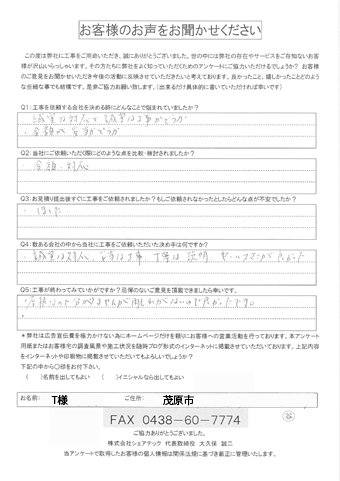 お客様のお声をお聞かせください
この度は弊社に工事をご用命いただき、誠にありがとうございました。世の中には弊社の存在やサービスをご存知ないお客
様が沢山いらっしゃいます。その方たちに弊社をよく知っていただくためのアンケートにご協力いただけるでしょうか？ お客様
のご意見をお聞かせいただき今後の活動に反映させていただきたいと考えております。良かったこと、嬉しかったことどのよう
な些細な事でも結構です。是非ご協力お願い致します。（出来るだけ具体的に書いていただければ幸いです）
Q1：工事を依頼する会社を決める時にどんなことで悩まれていましたか？
・誠実な対応と誠実な工事かどうか
・金額が妥当かどうか
Q2：当社にご依頼いただく際にどのような点を比較・検討されましたか？
・金額・対応
Q3：お見積り提出後すぐに工事をご依頼されましたか？もしご依頼されなかったとしたらどんな点が不安でしたか？
・はい
Q4：数ある会社の中から当社に工事をご依頼いただいた決め手は何ですか？
・誠実な対応、妥当な工事、丁寧な説明 セールスマンが良かった
Q5：工事が終わってみていかがですか？忌憚のないご意見を頂戴できましたら幸いです。
＊弊社は広告宣伝費を極力かけない為にホームページだけを頼りにお客様への営業活動を行っております。本アンケート
用紙またはお客様宅の調査風景や施工状況を随時ブログ形式のインターネットに掲載させていただいております。上記内容
をインターネットや印刷物に掲載させていただいてもよろしいでしょうか？
下記の中から〇印をお付下さい。
（ ）名前を出してもよい （ ）イニシャルなら出してもよい
お名前： T様 ご住所： 茂原市
FAX 0438-60-7774
ご協力ありがとうございました。
株式会社シェアテック 代表取締役 大久保 誠二
当アンケートで取得したお客様の個人情報は関係法規に基づき厳正に管理いたします。